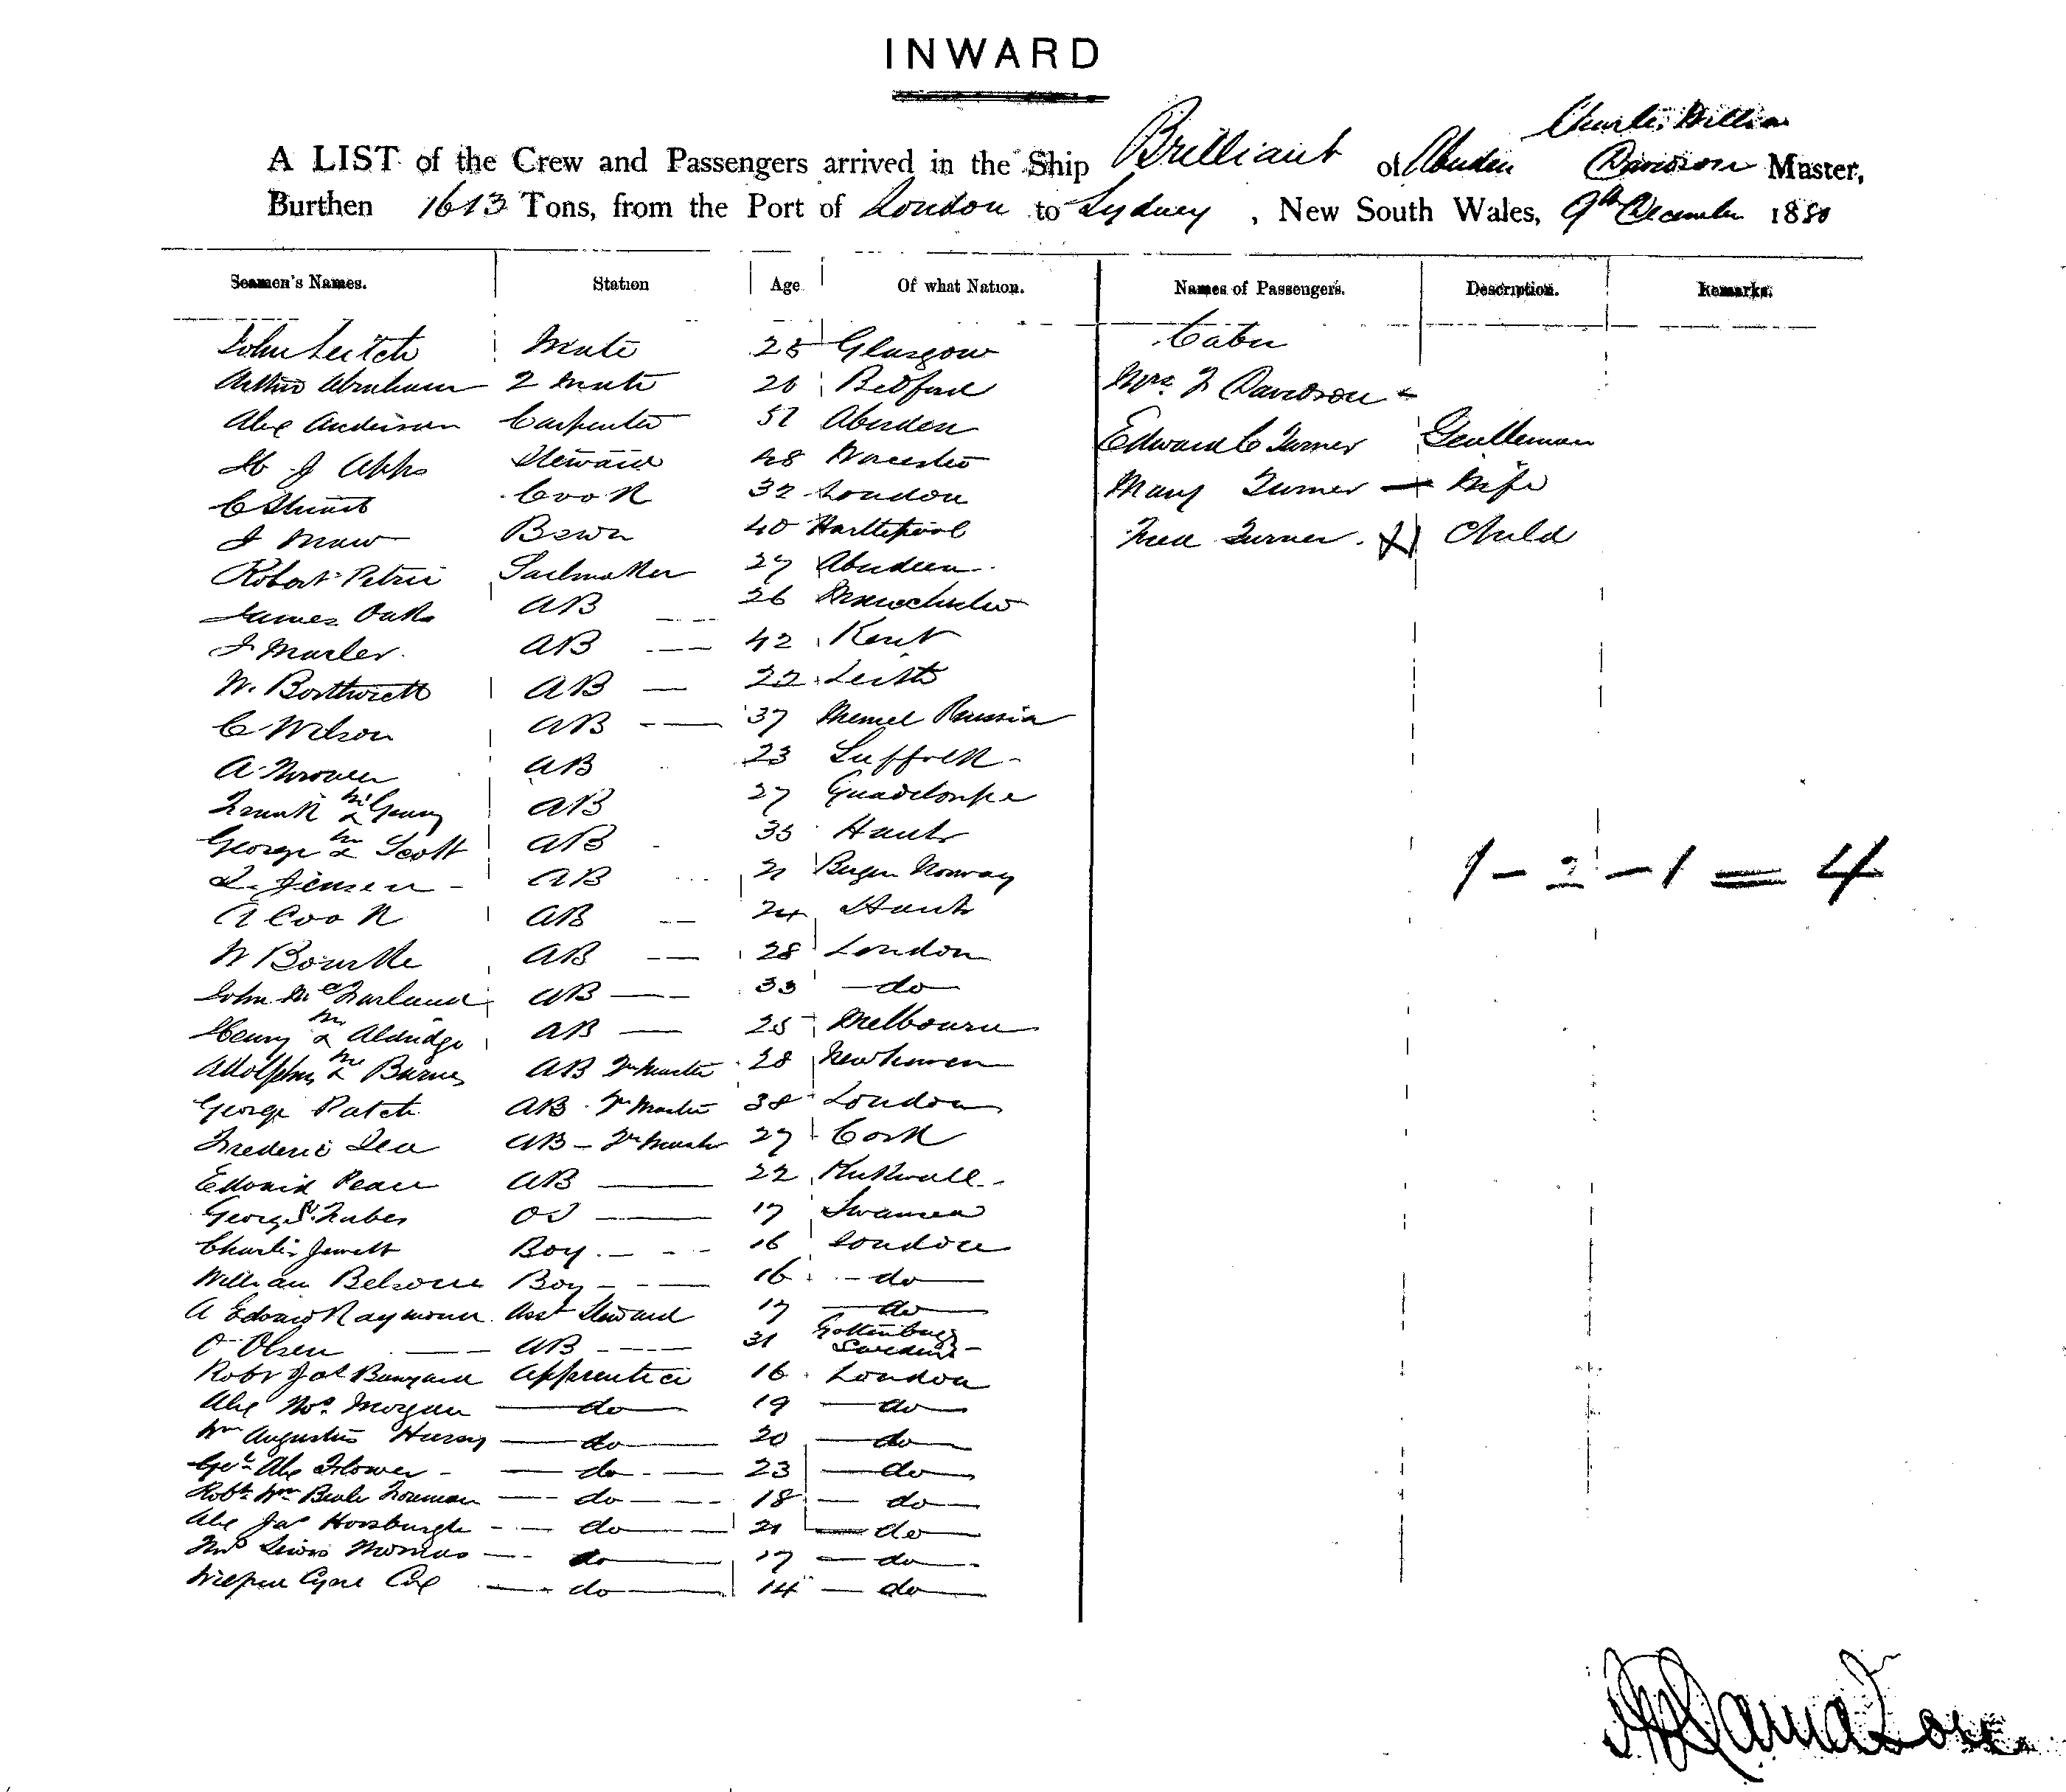 INWARD
Charles William
A LIST of the Crew and Passengers arrived in the Ship Brilliant of Aberdeen Davidson Master,
Burthen 1613 Tons, from the Port of London to Sydney, New South Wales, 9th December 1880
Seamen's Names. Station Age Of what Nation. Names of Passengers. Description. Remarks.
John Leitch Mate 25 Glasgow Cabin
Arthur Abraham 2 Mate 26 Bedford Mrs. Davidson
Alex Anderson Carpenter 51 Aberdeen Edward C Turner Gentleman
H J Apps Steward 48 Worcester Mary Turner — Wife
C Stuart Cook 32 London Turner. Child
J Maw Bswn 40 Hartlepool
Robert Petrie Sailmaker 27 Aberdeen
James Oaks AB 26 Manchester
J Marler. AB 42 Kent
W. Borthwick AB — 22 Leith
C Wilson AB 37 Memel Russia
A. AB 23 Suffolk
Frank AB 27 Guadeloupe
George Scott AB 35 Hants
L. Jensen AB 21 Bergen Norway
1 - 2 - 1 = 4
A Cook AB 24 Hants
W Bourke AB 28 London
John McFarland AB 33 do
Henry Aldridge AB 25 Melbourne
Adolphus Barnes AB 28 Newhaven
George Patch AB 38 London
Frederic Lea AB 27 Cork
Edward Peace AB 22 Kirkwall
George OS 17 Swansea
Charles Jewett Boy 16 London
William Belsone Boy 16 do
A Edward Raymond Asst Steward 17 do
O Olsen AB 31 Gottenburg
Sweden
Robt Jas Bunyard Apprentice 16 London
Alex Morgan do 19 do
Wm Augustus do 20 do
Geo Alex Flower do 23 do
Robt Wm Beale do 18 do
Alex Jas Horsburgh do 21 do
Lewis Thomas do 17 do
Cyril Cox do 14 do